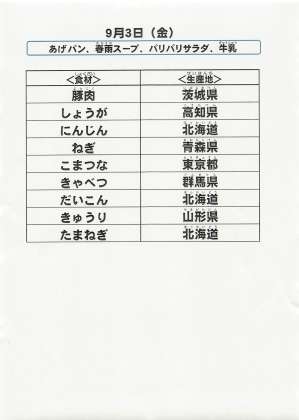 9月3日（金）
あげパン、春雨スープ、パリパリサラダ、牛乳
＜食材＞ ＜生産地＞
豚肉 茨城県
しょうが 高知県
にんじん 北海道
ねぎ 青森県
こまつな 東京都
きゃべつ 群馬県
だいこん 北海道
きゅうり 山形県
たまねぎ 北海道